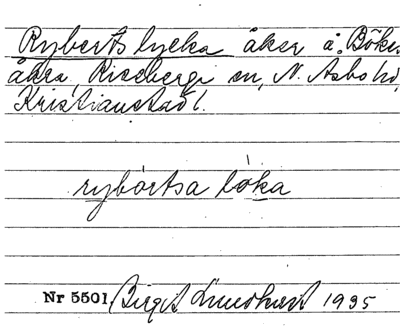 Ryberts lycka åker å Böke-
åkra, Riseberga sn, N. Asbo hd,
Kristianstad l.
rybärtsa løka
Nr 5501 Birgit Lundkvist 1935